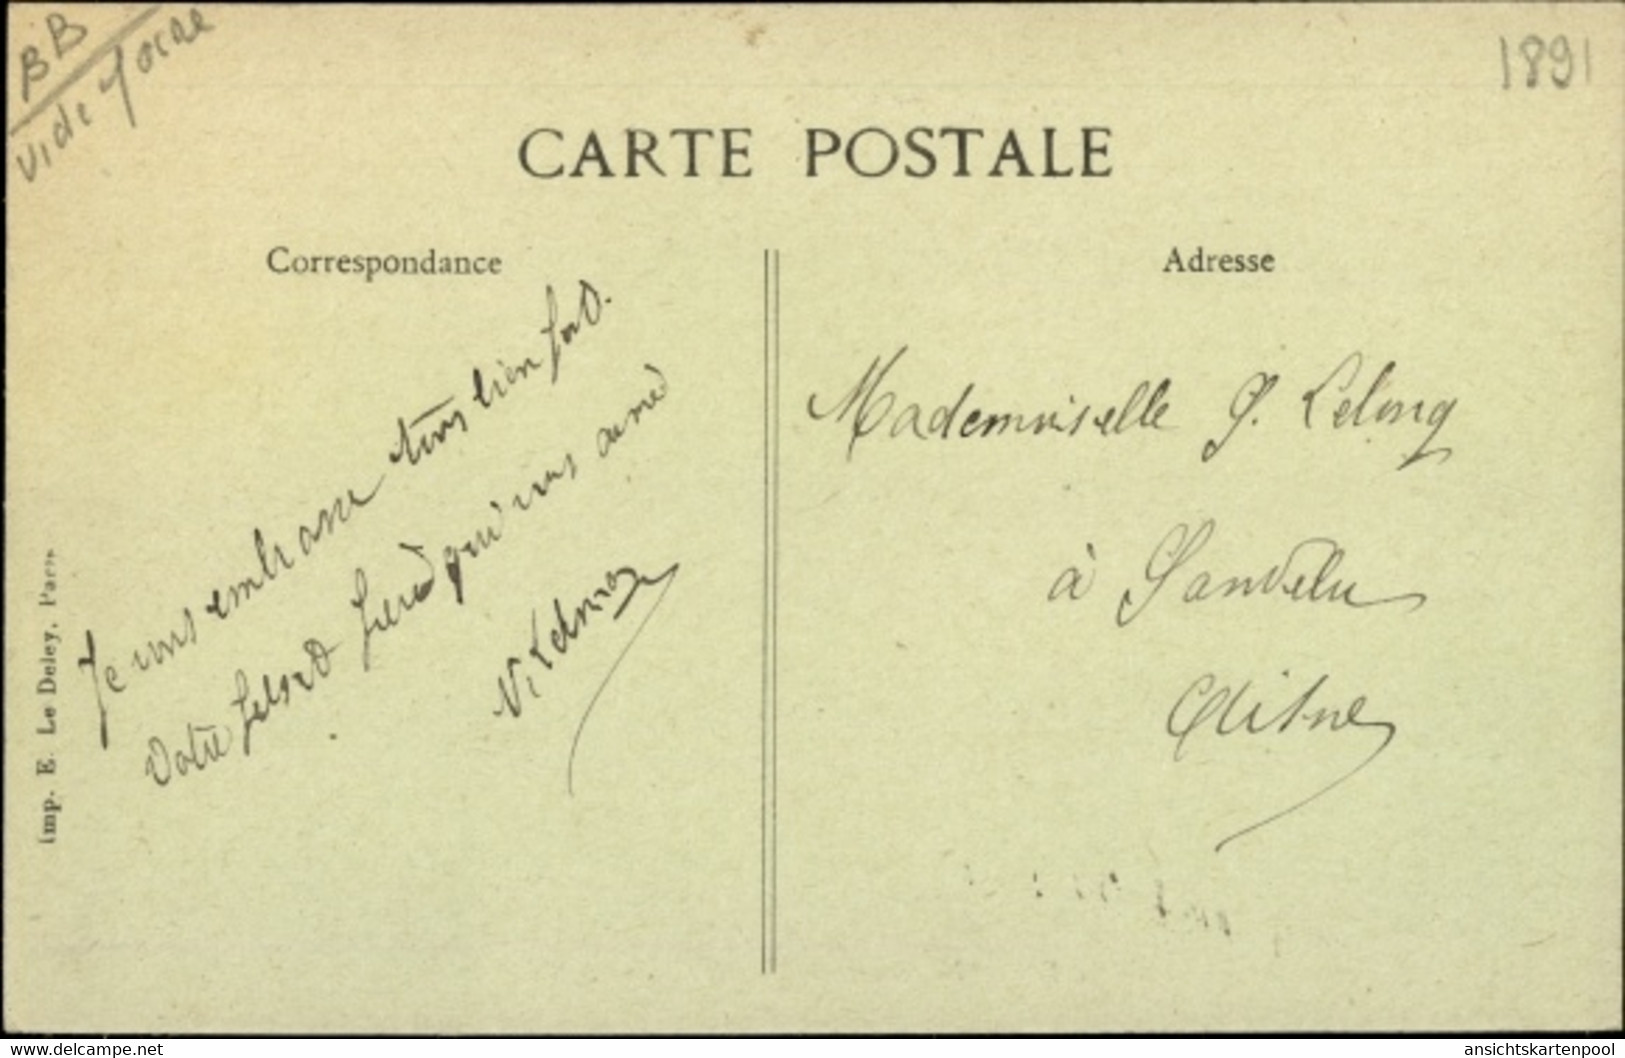 BB
Vide
1891
CARTE POSTALE
Correspondance
Adresse
Je vous embrasse tous bien fort.
Votre qui vous aime
V. Lelong
Mademoiselle G. Lelong
à Sandelu
Aisne
Imp. E. Le Deley, Paris
www.delcampe.net
ansichtskartenpool